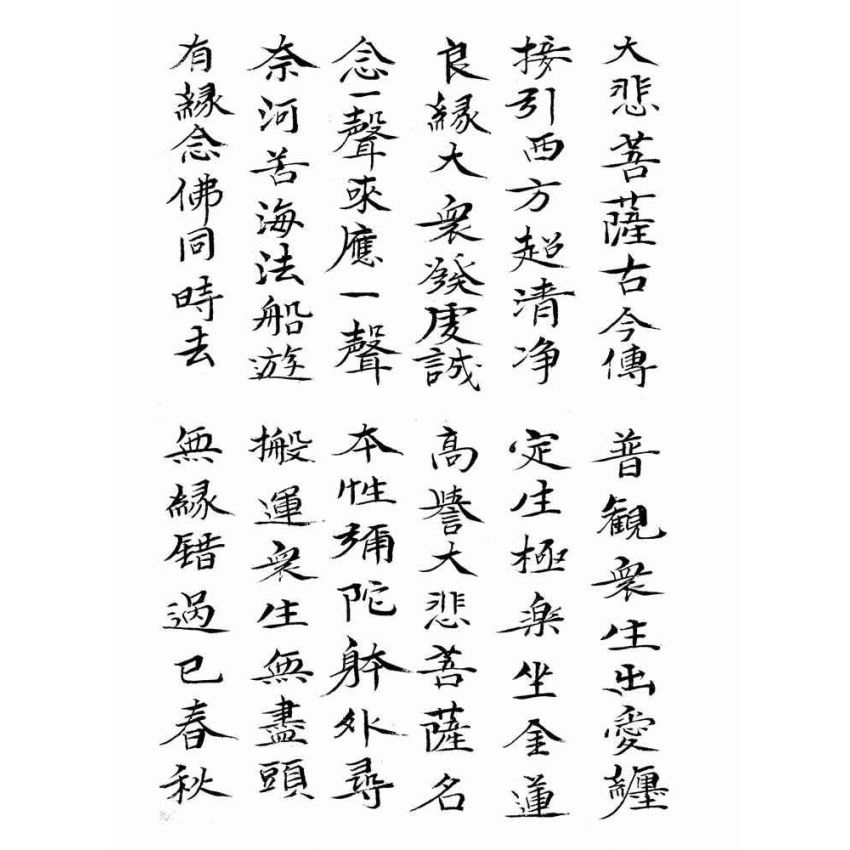 大悲菩薩古今傳
普観衆生出愛纏
接引西方超清净
定生極楽坐金蓮
良縁大衆發虔誠
高譽大悲菩薩名
念一聲來應一聲
本性彌陀躰外尋
奈河苦海法船遊
搬運衆生無盡頭
有縁念佛同時去
無縁錯過已春秋